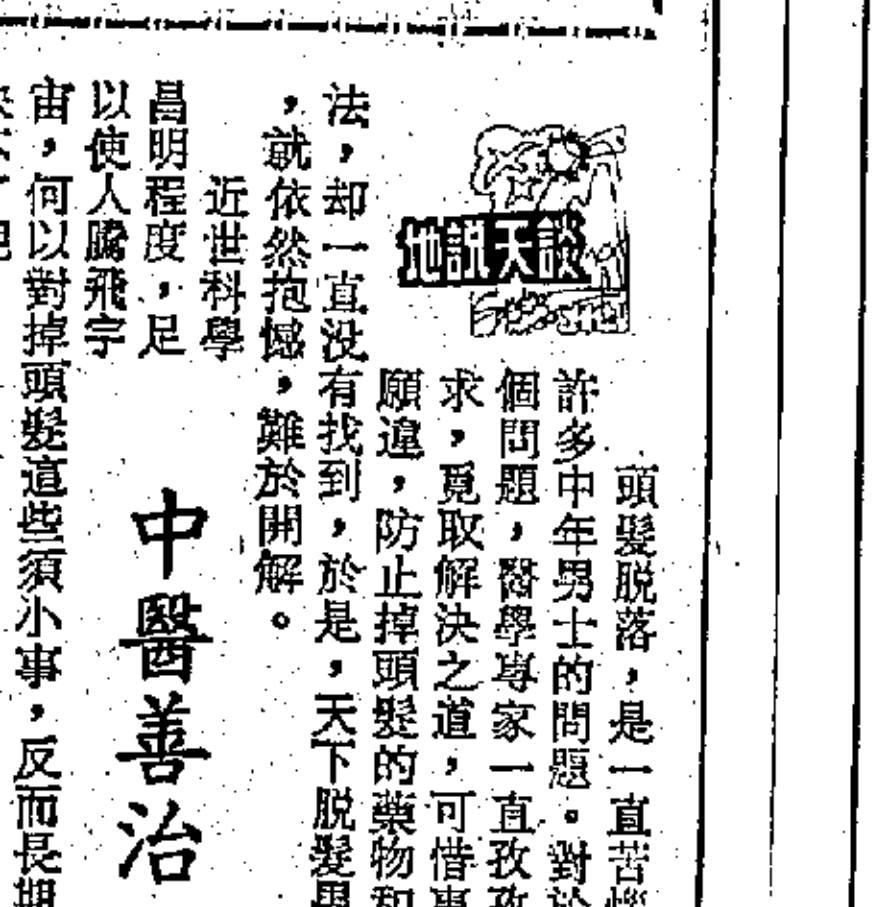 談天説地
中醫善治
頭髮脱落，是一直苦惱
許多中年男士的問題。對於
個問題，醫學專家一直孜孜
求，覓取解決之道，可惜事
願違，防止掉頭髮的藥物和
法，却一直没有找到，於是，天下脱髮男
，就依然抱憾，難於開解。
近世科學
昌明程度，足
以使人騰飛宇
宙，何以對掉頭髮這些須小事，反而長期